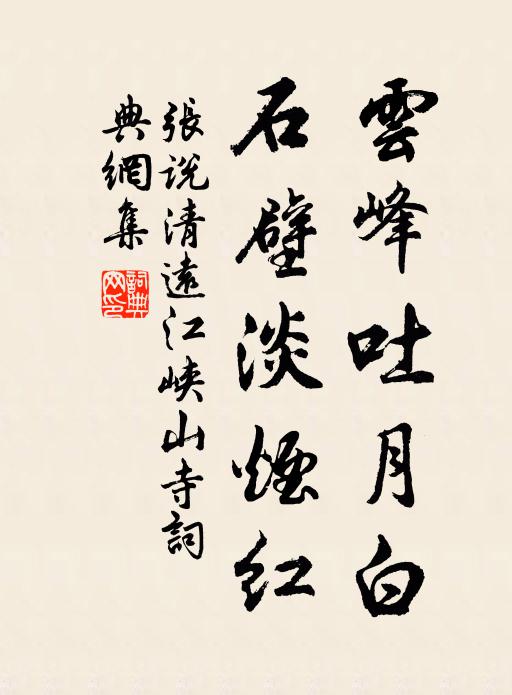 雲峰吐月白
石壁淡煙紅
張說清遠江峽山寺詞
典網集
詞典網印